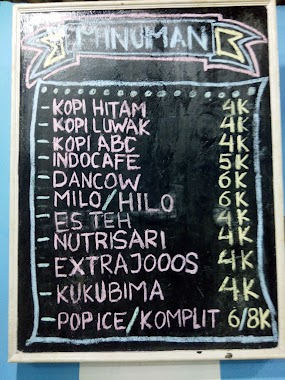 MINUMAN
- KOPI HITAM 4K
- KOPI LUWAK 4K
- KOPI ABC 4K
- INDOCAFE 5K
- DANCOW 6K
- MILO/HILO 6K
- ES TEH 4K
- NUTRISARI 4K
- EXTRAJOOOS 4K
- KUKUBIMA 4K
- POPICE/KOMPLIT 6/8K